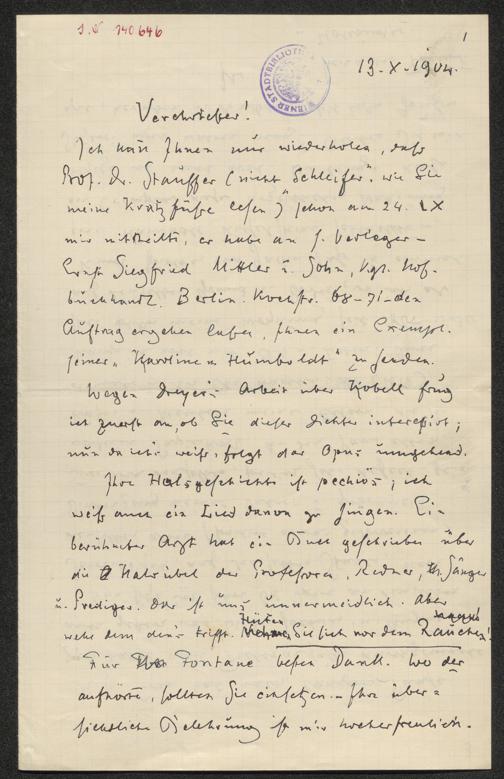 J.N 140646
1
WIENER STADTBIBLIOTHEK
13.X.1904.
Verehrtester!
Ich kann Ihnen nur wiederholen, daß
Prof. Dr. Stauffer (nicht „Schleifer“, wie Sie
meine Kratzfüße lesen) schon am 24. IX
mir mittheilte, er habe an s. Verleger –
Ernst Siegfried Mittler u. Sohn, Kgl. Hof-
buchhandl. Berlin. Kochstr. 68–71 – den
Auftrag ergehen lassen, Ihnen ein Exempl.
seiner „Karoline v. Humboldt“ zu senden.
Wegen Dreyer's Arbeit über Kobell frug
ich zuerst an, ob Sie dieser Dichter interessirt;
nun da ich's weiß, folgt das Opus umgehend.
Ihre Halsgeschichte ist pechiös; ich
weiß auch ein Lied davon zu singen. Ein
berühmter Arzt hat ein Buch geschrieben über
die Halsübel der Professoren, Redner, Sänger
u. Prediger. Das ist uns unvermeidlich. Aber
wehe dem den's trifft. Hüten Sie sich vor dem Rauchen!
Für Fontane besten Dank. Wo der
aufhörte, sollten Sie einsetzen. – Ihre über-
sichtliche Belehrung ist mir hocherfreulich.